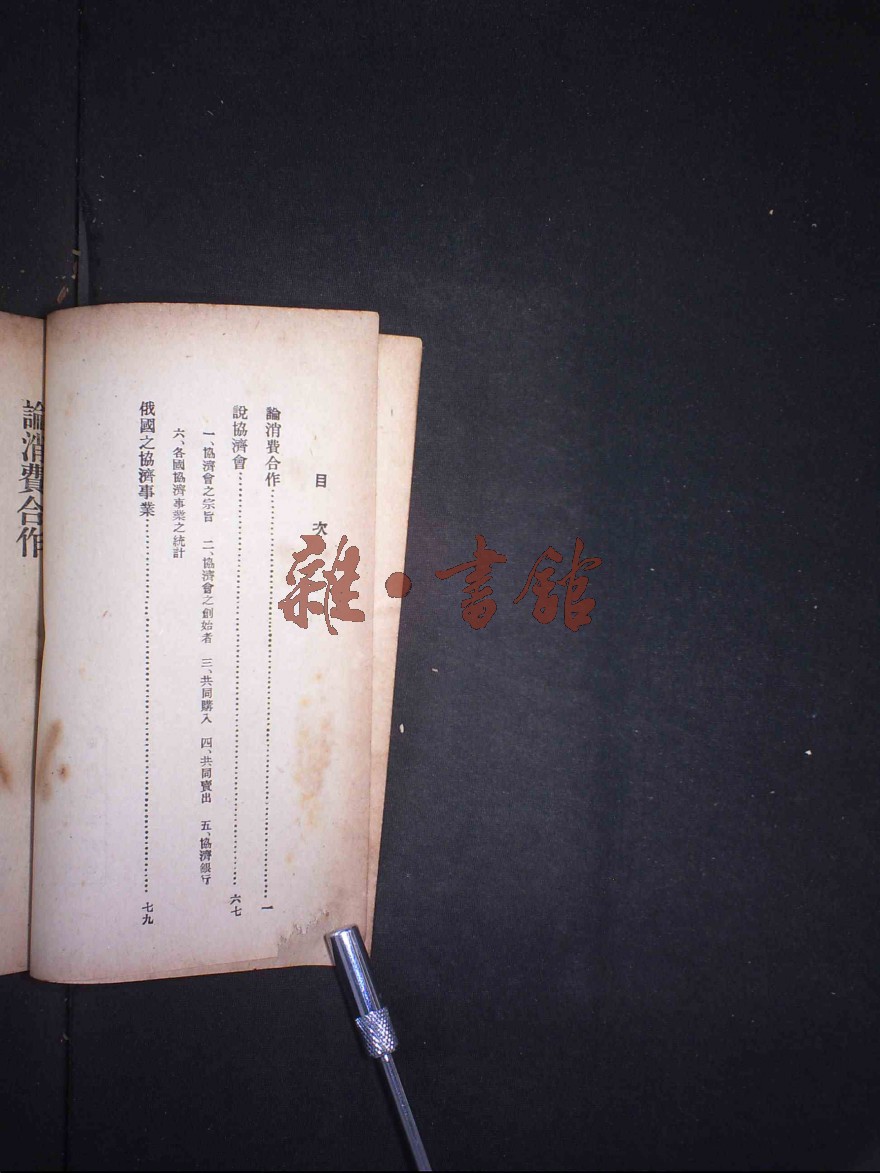 目次
論消費合作……一
說協濟會……六七
一、協濟會之宗旨　二、協濟會之創始者　三、共同購入　四、共同賣出　五、協濟銀行
六、各國協濟事業之統計
俄國之協濟事業……七九
論消費合作
雜·書館